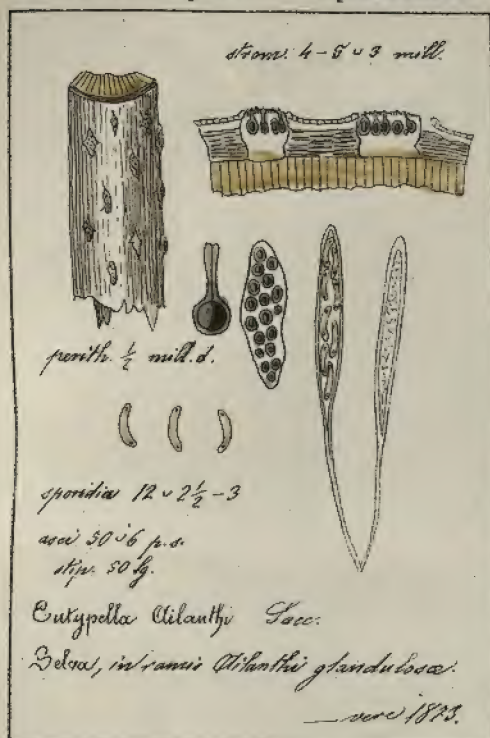 strom. 4-5 ᴗ 3 mill.
perith. ½ mill. d.
sporidia 12 ᴗ 2½-3
asci 50 ᴗ 6 p. s.
stip. 50 lg.
Eutypella Ailanthi Sacc.
Selva, in ramis Ailanthi glandulosæ.
vere 1873.